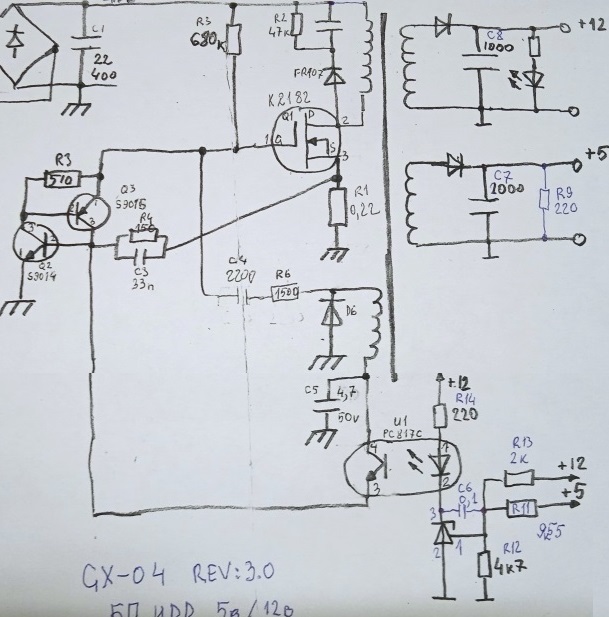 C1
22
400
R3
680к
R2
47к
FR107
K2182
Q1
D
G
S
1
2
3
R1
0,22
C8
1000
+12
C7
1000
+5
R9
220
R3
510
Q3
S9015
2
3
Q2
S9014
R4
C3
33n
C4
2200
R6
150Ω
D6
C5
4,7
50v
U1
PC817C
4
3
1
2
+12
R14
220
C6
0,1
3
2
1
R13
2к
+12
R11
+5
R12
4к7
GX-04 REV:3.0
БП HDD 5в/12в